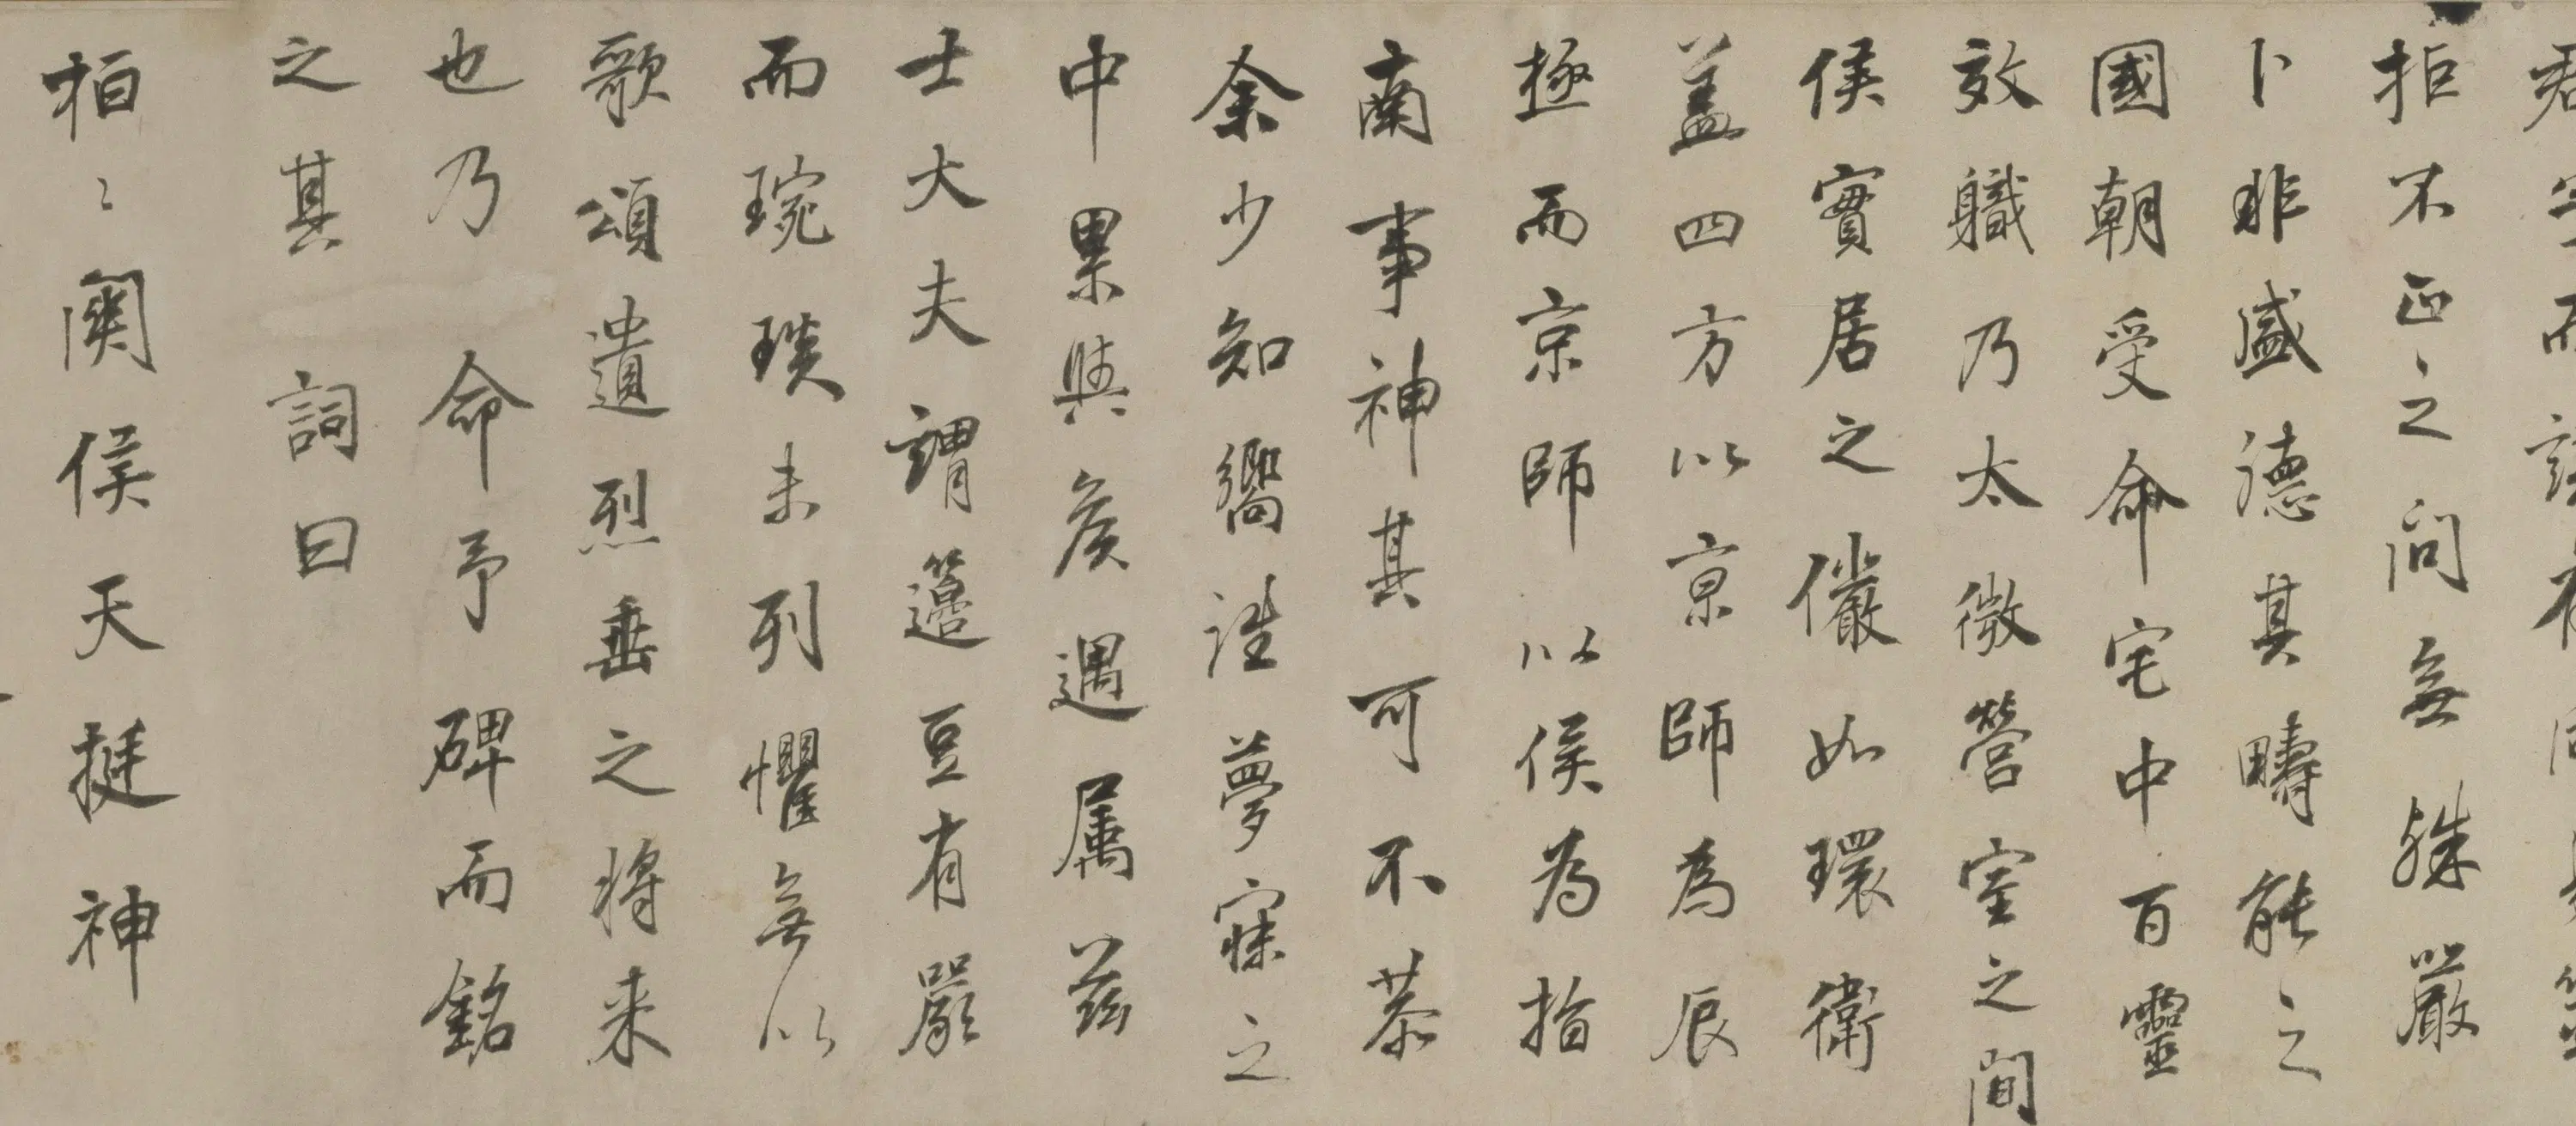 君
拒不正之之问無殊嚴
卜非盛德其疇能之
國朝受命宅中百靈
效職乃太微營室之間
侯實居之儼如環衛
盖四方以京師為辰
極而京師以侯為指
南事神其可不恭
余少知嚮往夢寐之
中累與侯遇属兹
士大夫謂籩豆有嚴
而琬琰未列懼無以
歌頌遺烈垂之将来
也乃命予碑而銘
之其詞曰
桓〻関侯天挺神